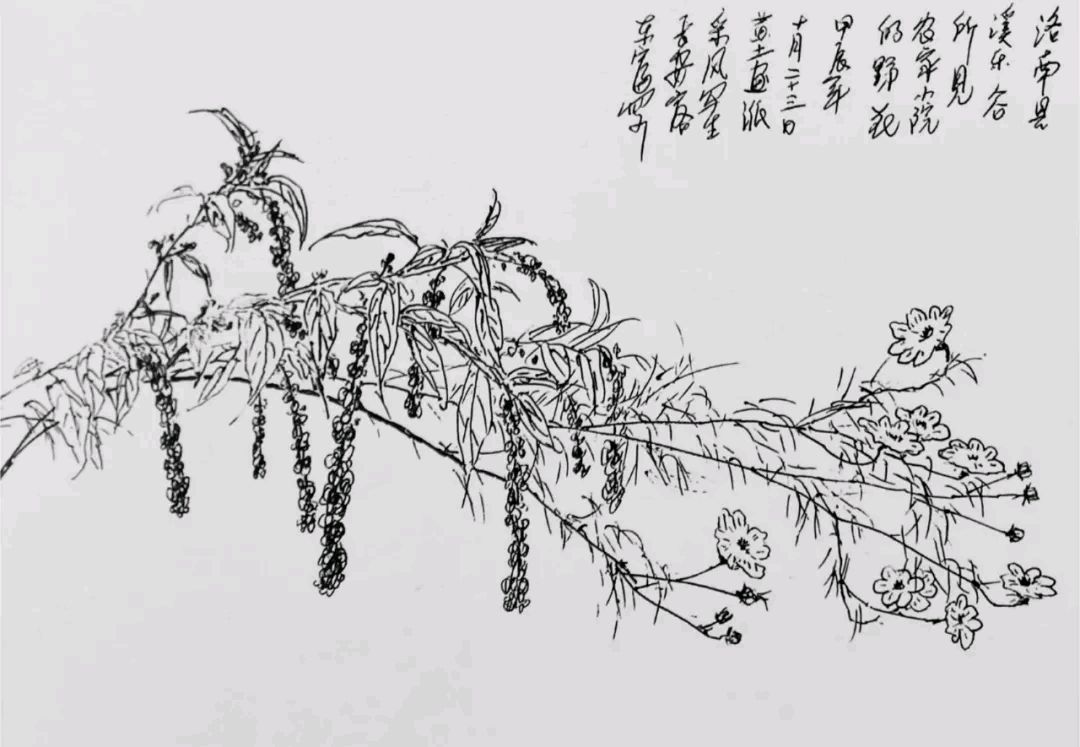 洛南县
溪乐谷
所见
农家小院
的野花
甲辰年
十月二十三日
黄土画派
采风写生
长安客